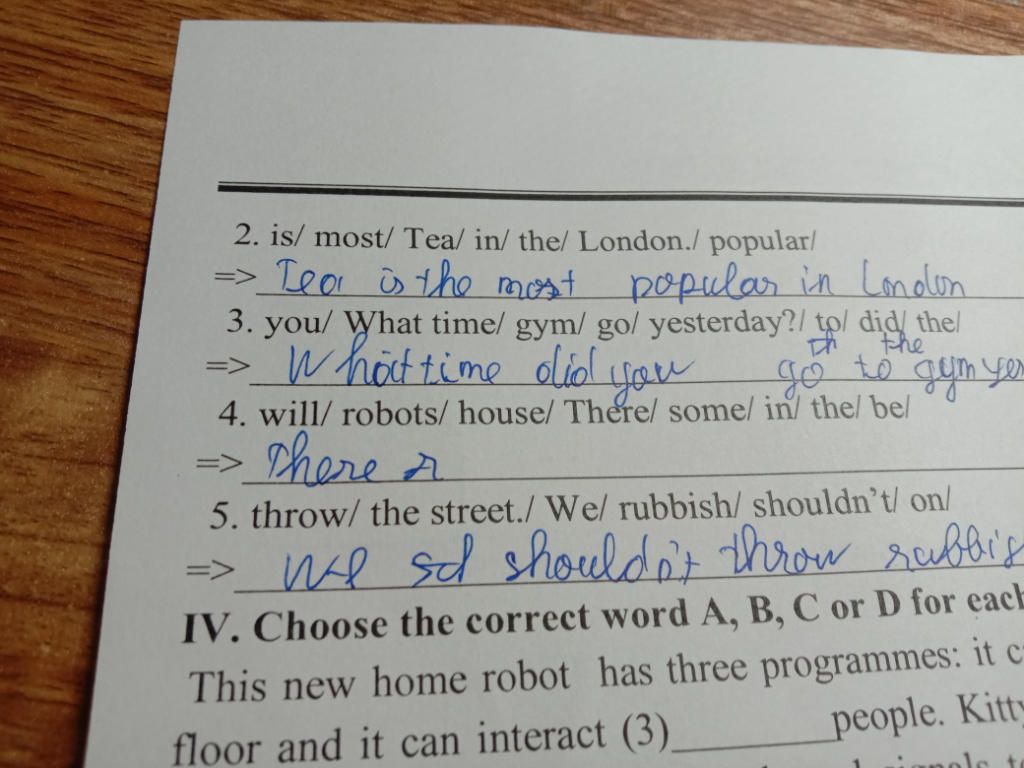 2. is/ most/ Tea/ in/ the/ London./ popular/
=> Tea is the most popular in London
3. you/ What time/ gym/ go/ yesterday?/ to/ did/ the/
th the
=> What time did you go to gym yer
4. will/ robots/ house/ There/ some/ in/ the/ be/
=> There r
5. throw/ the street./ We/ rubbish/ shouldn't/ on/
=> We sd shouldn't throw rubbis
IV. Choose the correct word A, B, C or D for each
This new home robot has three programmes: it c
floor and it can interact (3)________people. Kitty
signals to